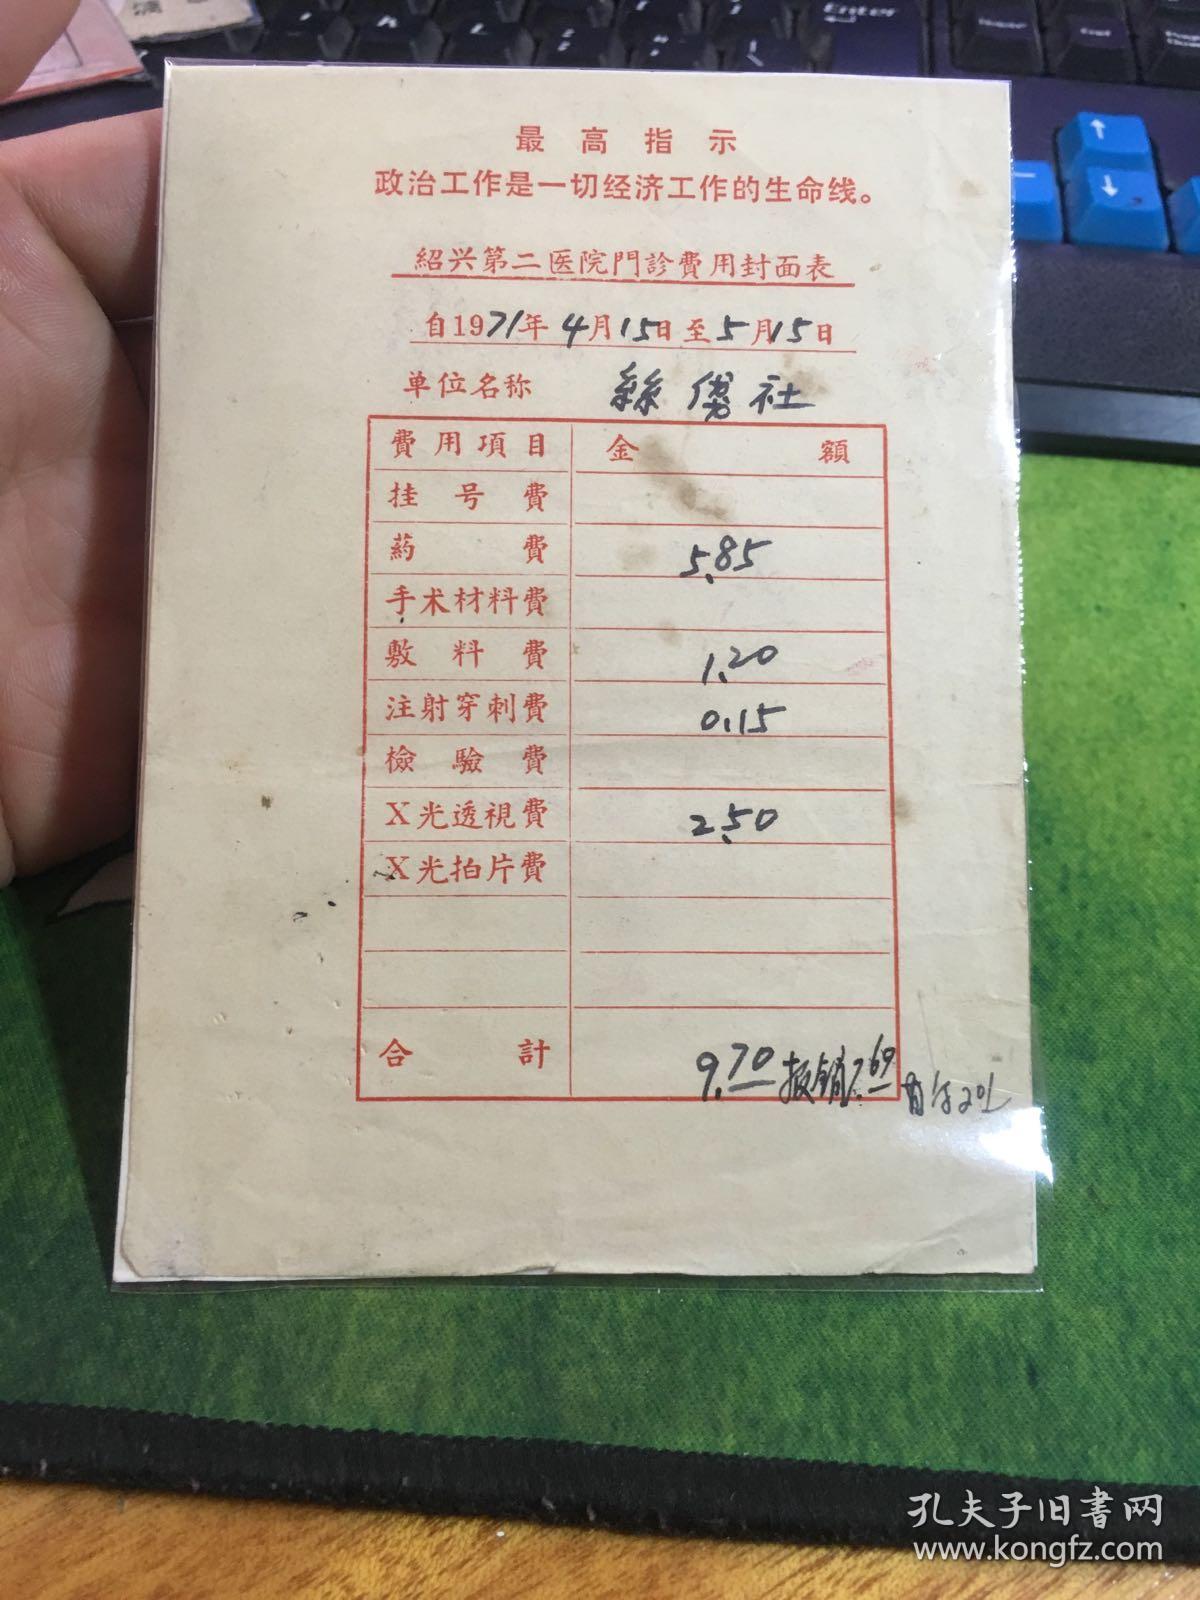 Enter
最高指示
政治工作是一切经济工作的生命线。
紹兴第二医院門診費用封面表
自1971年4月15日至5月15日
单位名称 社
費用項目 金額
挂号費
葯費 5.85
手术材料費
敷料費 1.20
注射穿刺費 0.15
檢驗費
X光透視費 2.50
X光拍片費
合計 9.70 报销7.69
孔夫子旧书网
www.kongfz.com